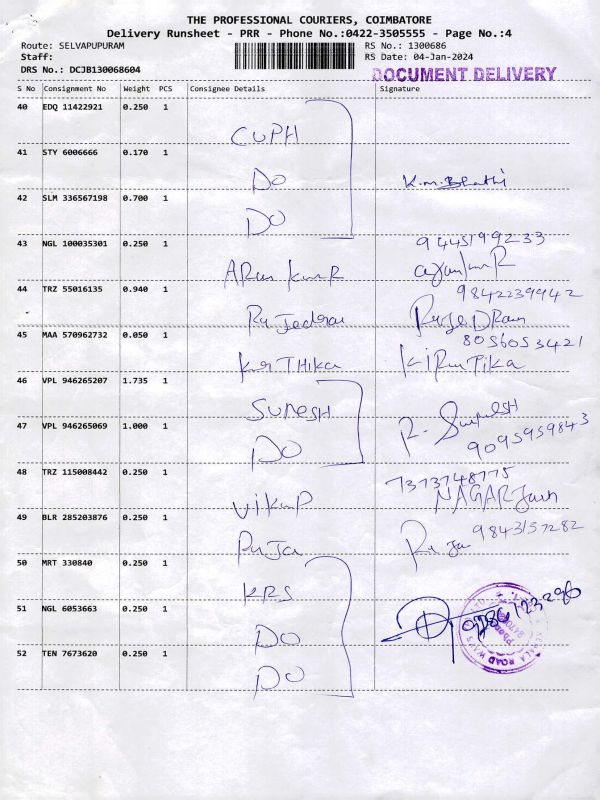 THE PROFESSIONAL COURIERS, COIMBATORE
Delivery Runsheet - PRR - Phone No.:0422-3505555 - Page No.:4
Route: SELVAPUPURAM RS No.: 1300686
Staff: RS Date: 04-Jan-2024
DRS No.: DCJB130068604 DOCUMENT DELIVERY
S No Consignment No Weight PCS Consignee Details Signature
40 EDQ 11422921 0.250 1 CUPH
41 STY 6006666 0.170 1 DO K.M.Bhathi
42 SLM 336567198 0.700 1 DO
43 NGL 100035301 0.250 1 ARun kumR 9445199233
44 TRZ 55016135 0.940 1 9842239942
45 MAA 570962732 0.050 1 8056053421
46 VPL 946265207 1.735 1 SuResH R. SuResH
47 VPL 946265069 1.000 1 DO 9095959843
48 TRZ 115008442 0.250 1 7373748775
NAGARJun
49 BLR 285203876 0.250 1 PuJa 9843157282
50 MRT 330840 0.250 1 KRS
51 NGL 6053663 0.250 1 DO
52 TEN 7673620 0.250 1 DO